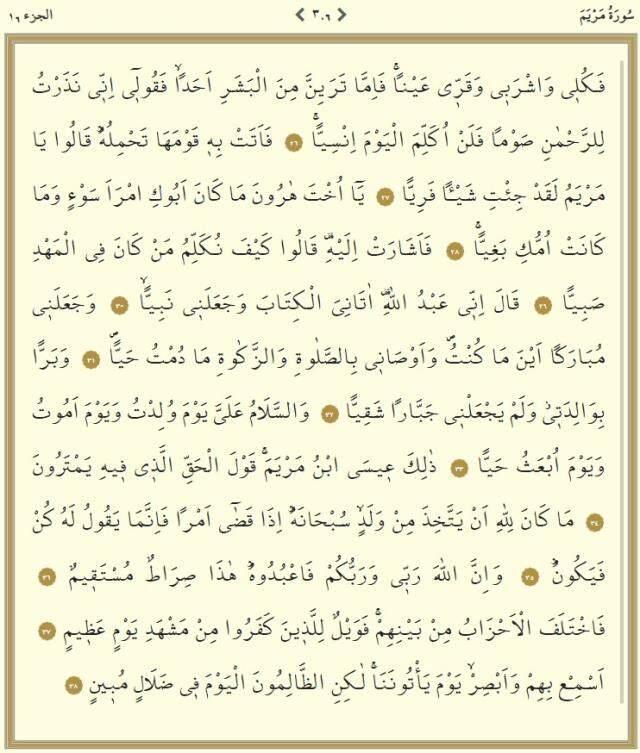 سُورَةُ مَرْيَمَ
٣٠٦
الجزء ١٦
فَكُلٖي وَاشْرَبٖي وَقَرّٖي عَيْنًاۚ فَاِمَّا تَرَيِنَّ مِنَ الْبَشَرِ اَحَدًاۙ فَقُولٖٓي اِنّٖي نَذَرْتُ
لِلرَّحْمٰنِ صَوْمًا فَلَنْ اُكَلِّمَ الْيَوْمَ اِنْسِيًّاۚ ٢٦ فَاَتَتْ بِهٖ قَوْمَهَا تَحْمِلُهُۜ قَالُوا يَا
مَرْيَمُ لَقَدْ جِئْتِ شَيْـًٔا فَرِيًّا ٢٧ يَٓا اُخْتَ هٰرُونَ مَا كَانَ اَبُوكِ امْرَاَ سَوْءٍ وَمَا
كَانَتْ اُمُّكِ بَغِيًّاۚ ٢٨ فَاَشَارَتْ اِلَيْهِۜ قَالُوا كَيْفَ نُكَلِّمُ مَنْ كَانَ فِي الْمَهْدِ
صَبِيًّا ٢٩ قَالَ اِنّٖي عَبْدُ اللّٰهِۜ اٰتَانِيَ الْكِتَابَ وَجَعَلَنٖي نَبِيًّاۙ ٣٠ وَجَعَلَنٖي
مُبَارَكًا اَيْنَ مَا كُنْتُۖ وَاَوْصَانٖي بِالصَّلٰوةِ وَالزَّكٰوةِ مَا دُمْتُ حَيًّاۖ ٣١ وَبَرًّا
بِوَالِدَتٖيۘ وَلَمْ يَجْعَلْنٖي جَبَّارًا شَقِيًّا ٣٢ وَالسَّلَامُ عَلَيَّ يَوْمَ وُلِدْتُ وَيَوْمَ اَمُوتُ
وَيَوْمَ اُبْعَثُ حَيًّا ٣٣ ذٰلِكَ عٖيسَى ابْنُ مَرْيَمَۚ قَوْلَ الْحَقِّ الَّذٖي فٖيهِ يَمْتَرُونَ
٣٤ مَا كَانَ لِلّٰهِ اَنْ يَتَّخِذَ مِنْ وَلَدٍۙ سُبْحَانَهُۜ اِذَا قَضٰٓى اَمْرًا فَاِنَّمَا يَقُولُ لَهُ كُنْ
فَيَكُونُۜ ٣٥ وَاِنَّ اللّٰهَ رَبّٖي وَرَبُّكُمْ فَاعْبُدُوهُۜ هٰذَا صِرَاطٌ مُسْتَقٖيمٌ ٣٦
فَاخْتَلَفَ الْاَحْزَابُ مِنْ بَيْنِهِمْۚ فَوَيْلٌ لِلَّذٖينَ كَفَرُوا مِنْ مَشْهَدِ يَوْمٍ عَظٖيمٍ ٣٧
اَسْمِعْ بِهِمْ وَاَبْصِرْۙ يَوْمَ يَأْتُونَنَاۚ لٰكِنِ الظَّالِمُونَ الْيَوْمَ فٖي ضَلَالٍ مُبٖينٍ ٣٨